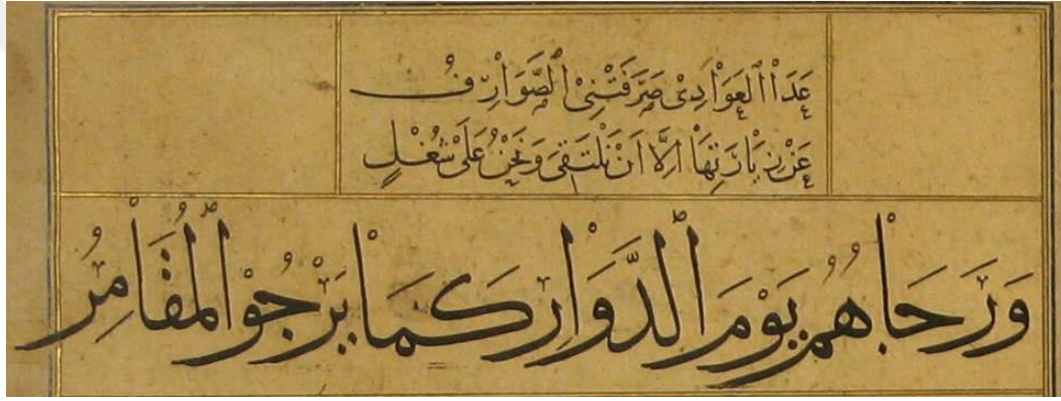 عَدَاْ ٱلْعَوَاْدِىْ صَرَفَتْنِىْ ٱلصَّوَاْرِفُ
عَنْ زِيَاْرَتِهَاْ اِلَّا اَنْ نَلْتَقِىَ وَنَحْنُ عَلَىْ شُغْلٍ
وَرَجَاْهُمُ يَوْمَ ٱلدَّوَاْرِ كَمَاْ يَرْجُوْ ٱلْمُقَاْمِرُ